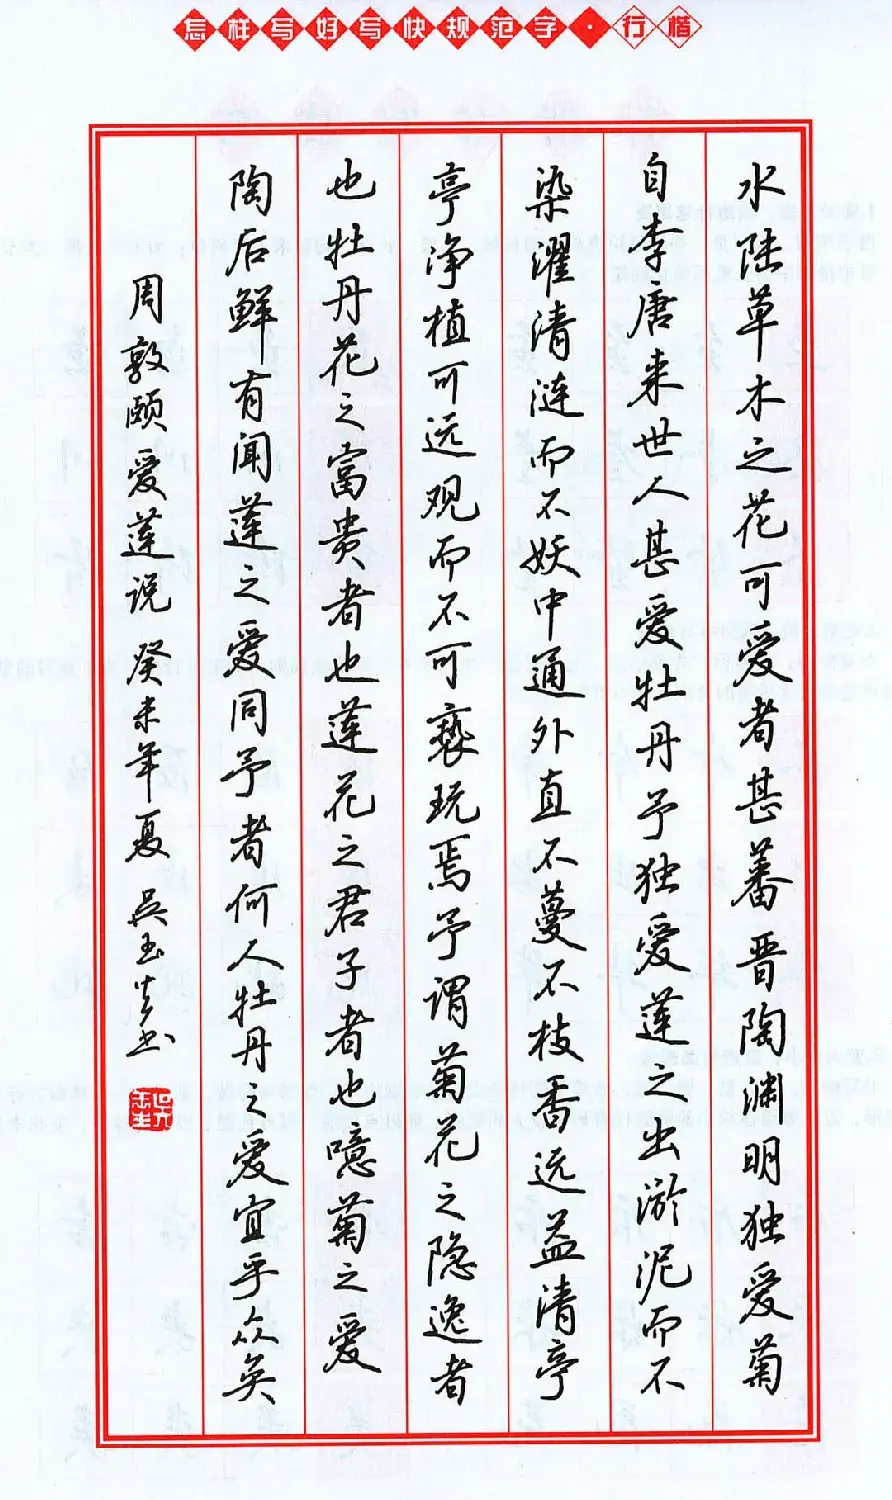 怎样写好写快规范字·行楷
水陆草木之花可爱者甚蕃晋陶渊明独爱菊
自李唐来世人甚爱牡丹予独爱莲之出淤泥而不
染濯清涟而不妖中通外直不蔓不枝香远益清亭
亭净植可远观而不可亵玩焉予谓菊花之隐逸者
也牡丹花之富贵者也莲花之君子者也噫菊之爱
陶后鲜有闻莲之爱同予者何人牡丹之爱宜乎众矣
周敦颐爱莲说 癸未年夏 吴玉生书